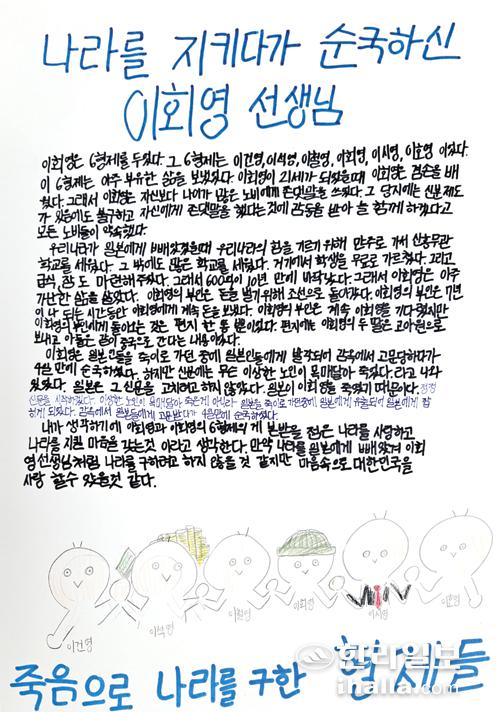 나라를 지키다가 순국하신
이회영 선생님
이회영은 6형제를 두었다. 그 6형제는 이건영, 이석영, 이철영, 이회영, 이시영, 이호영 이었다.
이 6형제는 아주 부유한 삶을 보냈었다. 이회영이 21세가 되었을때 이회영은 겸손을 배
웠다. 그래서 이회영은 자신보다 나이가 많은 노비에게 존댓말을 쓰었다. 그 당시에는 신분제도
가 있음에도 불구하고 자신에게 존댓말을 했다는것에 감동을 받아 늘 함께 하겠다고
모든 노비들이 약속했다.
우리나라가 일본에게 빼앗겼을때 우리나라의 힘을 기르기 위해 만주로 가서 신흥무관
학교를 세웠다. 그 밖에도 많은 학교를 세웠다. 거기에서 학생을 무료로 가르쳤다. 그리고
급식, 잠도 마련해주었다. 그래서 600억이 10년 만에 바닥났다. 그래서 이회영은 아주
가난한 삶을 살았다. 이회영의 부인은 돈을 벌기위해 조선으로 돌아갔다. 이회영의 부인은 7년
이 나 되는 시간동안 이회영에게 계속 돈을 보냈다. 이회영의 부인은 계속 이회영을 기다렸지만
이회영의 부인에게 돌아오는 것은 편지 한 통 뿐이었다. 편지에는 이회영의 두 딸은 고아원으로
보내고 아들은 같이 중국으로 간다는 내용이었다.
이회영은 일본인들을 죽이로 가던 중에 일본인들에게 발각되어 감옥에서 고문당하다가
4일 만에 순국하셨다. 하지만 신문에는 무슨 이상한 노인이 목매달아 죽었다. 라고 나와
있었다. 일본은 그 신문을 고치려고 하지 않았다. 일본이 이회영을 죽였기 때문이다. 정정
신문을 시작하였다. 이상한 노인이 목매달아 죽은게 아니라 일본을 죽이로 가던중에 일본에게 유출되어 일본에게 잡
히게 되었다. 감옥에서 일본들에게 고문받다가 4일만에 순국하셨다.
내가 생각하기에 이회영과 이회영의 6형제의 게 본받을 점은 나라를 사랑하고
나라를 지킨 마음을 갖는것 이라고 생각한다. 만약 나라를 일본에게 빼앗겨 이회
영선생님처럼 나라를 구하려고 하지 않을 것 같지만 마음속으로 대한민국을
사랑 할수 있을것 같다.
이건영
이석영
이철영
이회영
이시영
이호영
죽음으로 나라를 구한 형제들
한라일보
ihalla.com